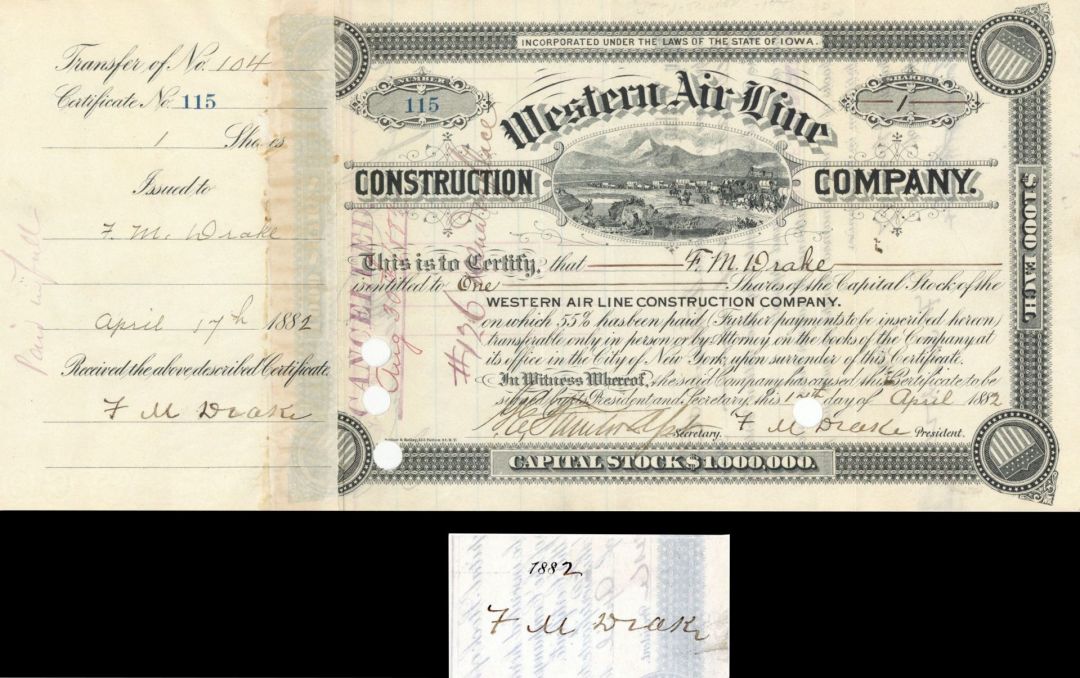 Transfer of No. 104
Certificate No. 115
1 Shares
Issued to
F. M. Drake
April 17th 1882
Received the above described Certificate.
F M Drake
Paid in full
INCORPORATED UNDER THE LAWS OF THE STATE OF IOWA.
NUMBER
115
SHARES
1
Western Air Line
CONSTRUCTION COMPANY.
$1000 EACH.
CANCELLED
Aug 30
#136
This is to Certify, that F. M. Drake
is entitled to One Shares of the Capital Stock of the
WESTERN AIR LINE CONSTRUCTION COMPANY.
on which 55% has been paid (Further payments to be inscribed hereon)
transferable only in person or by Attorney on the books of the Company at
its office in the City of New York upon surrender of this Certificate.
In Witness Whereof, the said Company has caused this Certificate to be
signed by its President and Secretary, this 17th day of April 1882
Secretary. F M Drake President.
CAPITAL STOCK $1,000,000.
1882
F M Drake